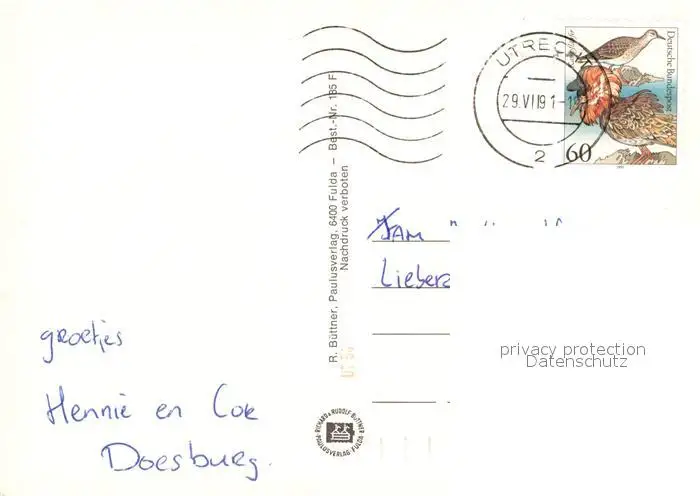 UTRECHT
29.VI.1991-1
2
Deutsche Bundespost
60
R. Büttner, Paulusverlag, 6400 Fulda – Best.-Nr. 185 F
Nachdruck verboten
Lieberz
groetjes
Hennie en Cor
Doesburg.
privacy protection
Datenschutz
RICHARD & RUDOLF BÜTTNER
PAULUSVERLAG FULDA